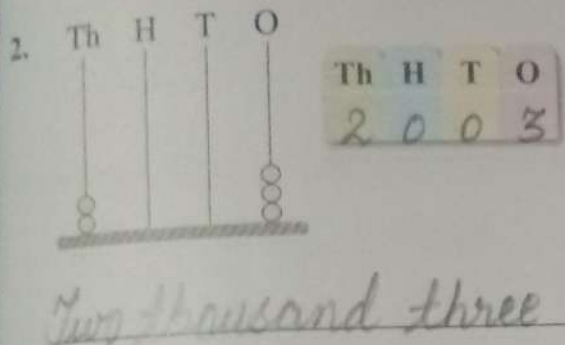 2. Th H T O
Th H T O
2 0 0 3
Two thousand three